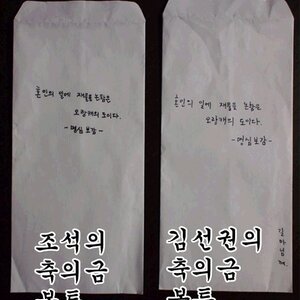 혼인의 일에 재물을 논함은
오랑캐의 도이다.
-명심보감-
혼인의 일에 재물을 논함은
오랑캐의 도이다.
-명심보감-
조석의
축의금
봉투
김선권의
축의금
봉투